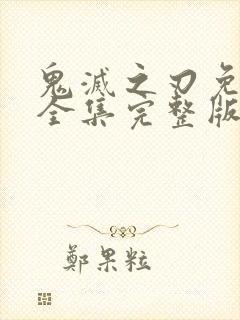 鬼滅之刃免
全集完整版
鄭果粒